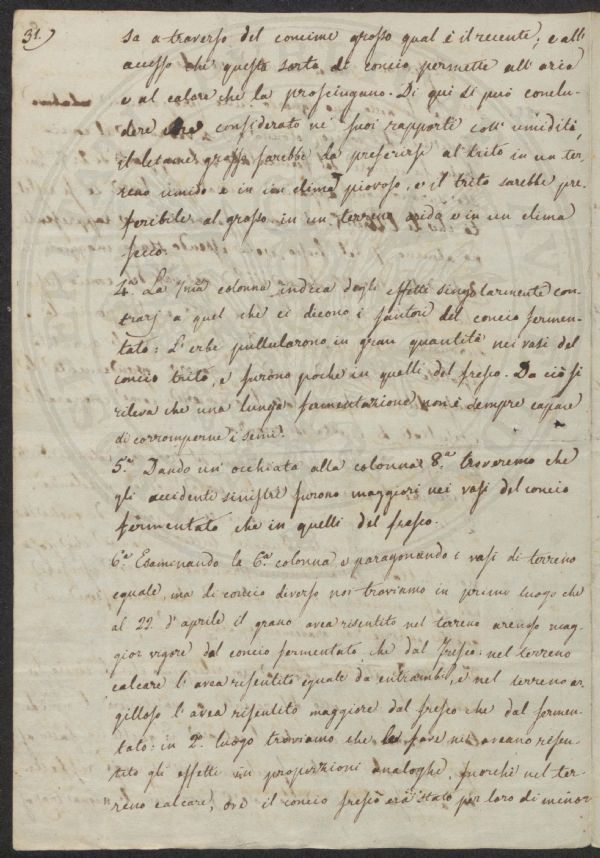 31.)
sa a traverso del concime grosso qual è il recente; e all'
acesso che questa sorta di concio permette all'aria
e al calore che la prosciugano. Di qui si può conclu-
dere che considerato ne' suoi rapporti coll'umidità,
il letame grosso sarebbe da preferirsi al trito in un ter-
reno umido e in un clima piovoso, e il trito sarebbe pre-
feribile al grosso in un terreno arido e in un clima
secco.
4.a La colonna indica degli effetti singolarmente con-
trarj a quel che ci dicono i fautori del concio fermen-
tato: L'erbe pullularono in gran quantità nei vasi del
concio trito, e furono poche in quelli del fresco. Da ciò si
rileva che una lunga fermentazione non è sempre capace
di corromperne i semi.
5.a Dando un'occhiata alla colonna 8.a troveremo che
gli accidenti sinistri furono maggiori nei vasi del concio
fermentato che in quelli del fresco.
6.a Esaminando la 6.a colonna e paragonando i vasi di terreno
eguale, ma di concio diverso noi troviamo in primo luogo che
al 22. d'aprile il grano avea risentito nel terreno arenoso mag-
gior vigore dal concio fermentato che dal fresco: nel terreno
calcare l'avea risentito iguale da entrambi, e nel terreno ar-
gilloso l'avea risentito maggiore dal fresco che dal fermen-
tato: in 2.o luogo troviamo che le fave ne aveano risen-
tito gli effetti in proporzioni analoghe, fuorchè nel ter-
reno calcare, ove il concio fresco era stato per loro di minor